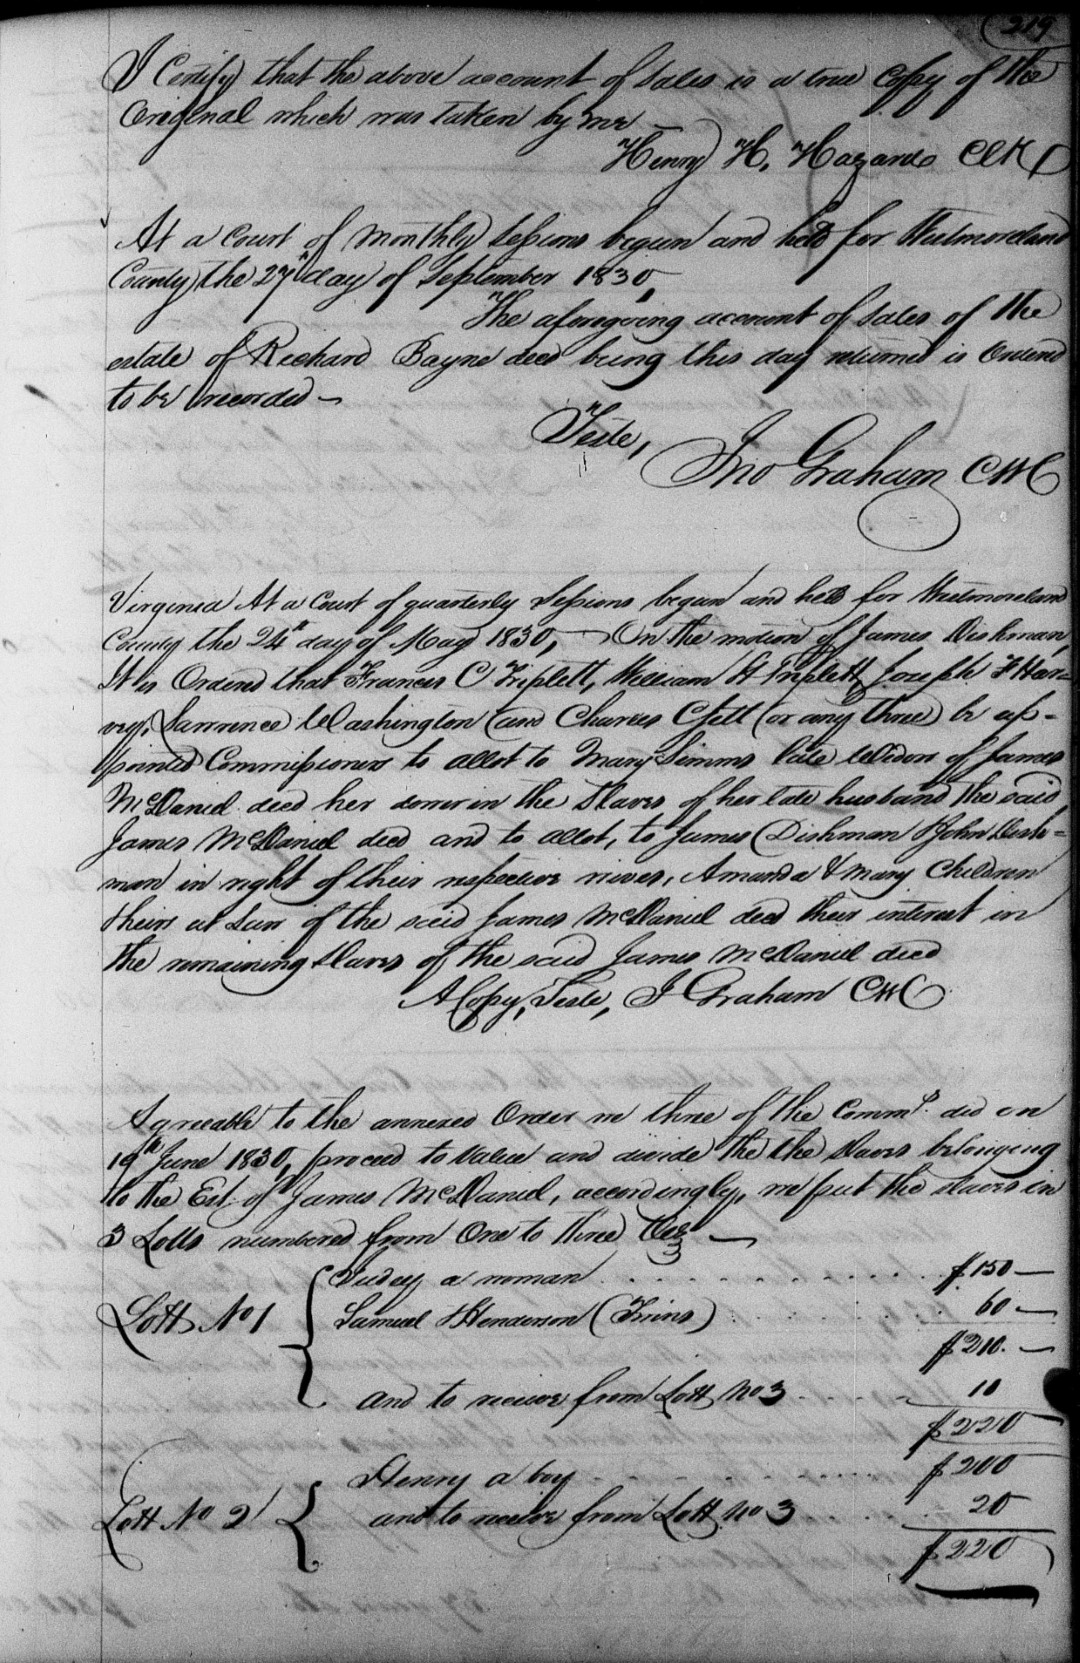 219
I Certify that the above account of Sales is a true Copy of the
Original which was taken by me
Henry H. Hazard Clk
At a Court of Monthly Sessions begun and held for Westmoreland
County the 27th day of September 1830,
The aforegoing account of Sales of the
estate of Richard Bayne decd being this day returned is Ordered
to be recorded –
Teste,
Jno Graham CWC
Virginia At a Court of quarterly Sessions begun and held for Westmoreland
County the 24th day of May 1830, – On the motion of James Dishman,
It is Ordered that Francis C Triplett, William H Triplett, Joseph F Har-
vey, Lawrence Washington and Charles C Jett (or any three) be ap-
pointed Commissioners to allot to Mary Simms late Widow of James
McDaniel decd her dower in the Slaves of her late husband the said
James McDaniel decd and to allot, to James Dishman & John Dish=
man in right of their respective wives, Amanda & Mary Children
& heirs at Law of the said James McDaniel decd their interest in
the remaining Slaves of the said James McDaniel decd
A Copy, Teste, J Graham CWC
Agreeable to the annexed Order we three of the Commrs. did on
19th June 1830, proceed to Value and divide the the Slaves belonging
to the Est. of James McDaniel, accordingly, we put the slaves in
3 Lotts numbered from One to three Viz –
Judey a woman $150 –
Lott No 1 Samuel & Henderson (Twins) 60 –
$210. –
and to receive from Lott No 3 10
$220
Henry a boy $200
Lott No 2 and to receive from Lott No 3 20
$220